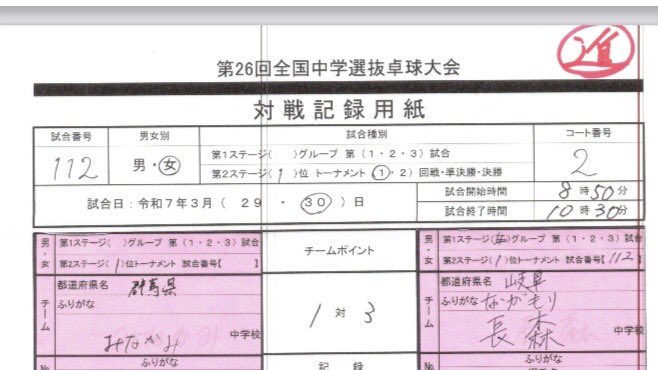 進
第26回全国中学選抜卓球大会
対戦記録用紙
試合番号 男女別 試合種別 コート番号
112 男・女 第1ステージ( )グループ 第(1・2・3)試合 2
第2ステージ(1)位 トーナメント(1・2)回戦・準決勝・決勝
試合日:令和7年3月(29・30)日 試合開始時間 8時50分
試合終了時間 10時30分
男・女 第1ステージ( )グループ 第(1・2・3)試合
第2ステージ(1)位トーナメント 試合番号[ ]
チーム
都道府県名 群馬県
ふりがな
みなかみ 中学校
チームポイント
1対3
男・女 第1ステージ(女)グループ 第(1・2・3)試合
第2ステージ(1)位トーナメント 試合番号[112]
チーム
都道府県名 岐阜
ふりがな ながもり
長森 中学校
No. ふりがな 記録 No. ふりがな